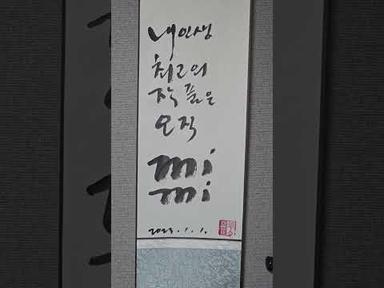 내 인생
최고의
작품은
오직
mi
mi
2023. 1. 1.